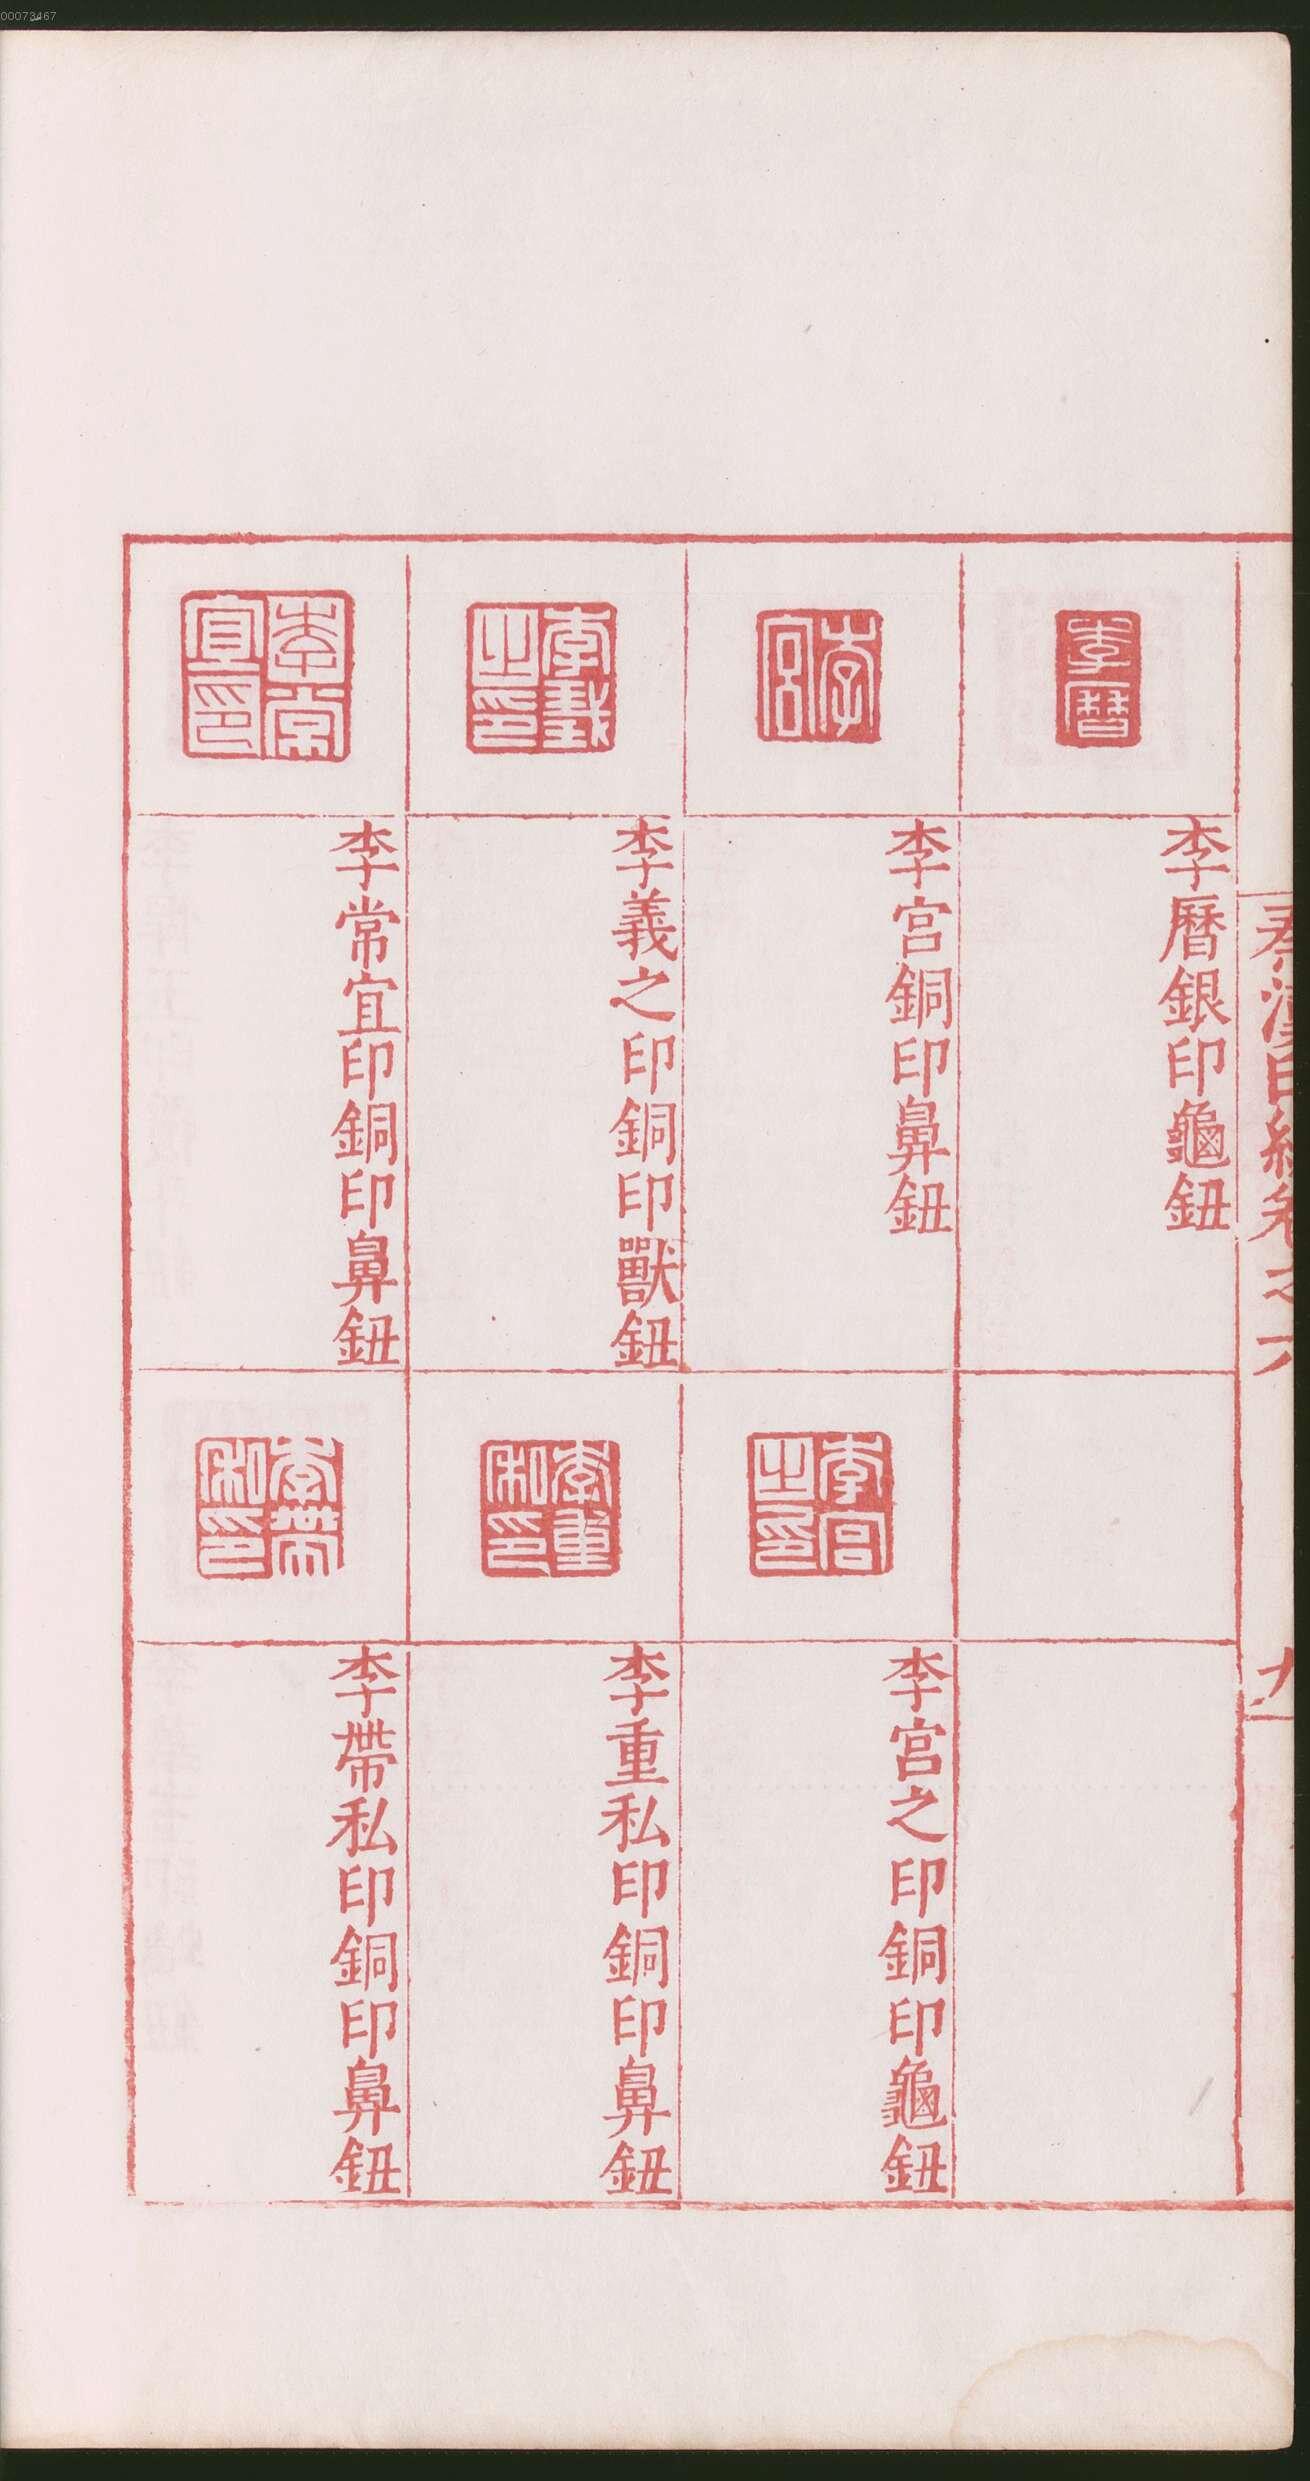 00073467
秦漢印統卷之六
九
李曆
李曆銀印龜鈕
李宮
李宮銅印鼻鈕
李宮之印
李宮之印銅印龜鈕
李義之印
李義之印銅印獸鈕
李重私印
李重私印銅印鼻鈕
李常宜印
李常宜印銅印鼻鈕
李帶私印
李帶私印銅印鼻鈕